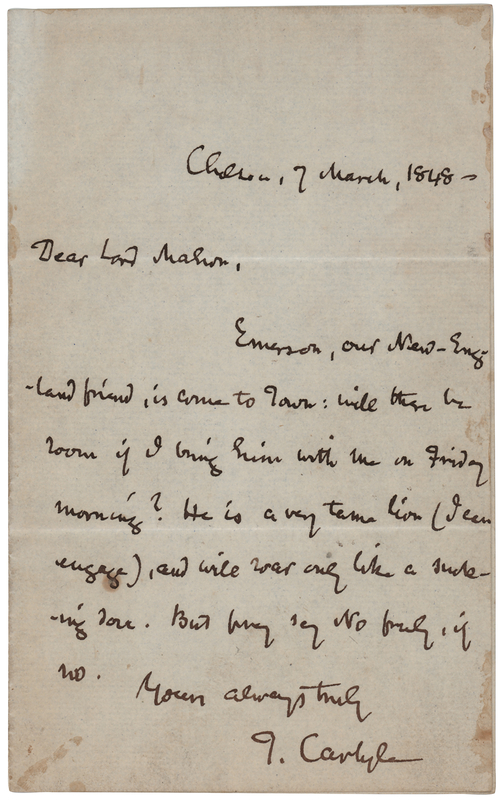 Chelsea, 7 March, 1848 –
Dear Lord Mahon,
Emerson, our New-Eng-
-land friend, is come to Town: will there be
room if I bring him with me on Friday
morning? He is a very tame lion (I can
engage), and will roar only like a suck-
-ing dove. But pray say No freely, if
no.
Yours always truly
T. Carlyle